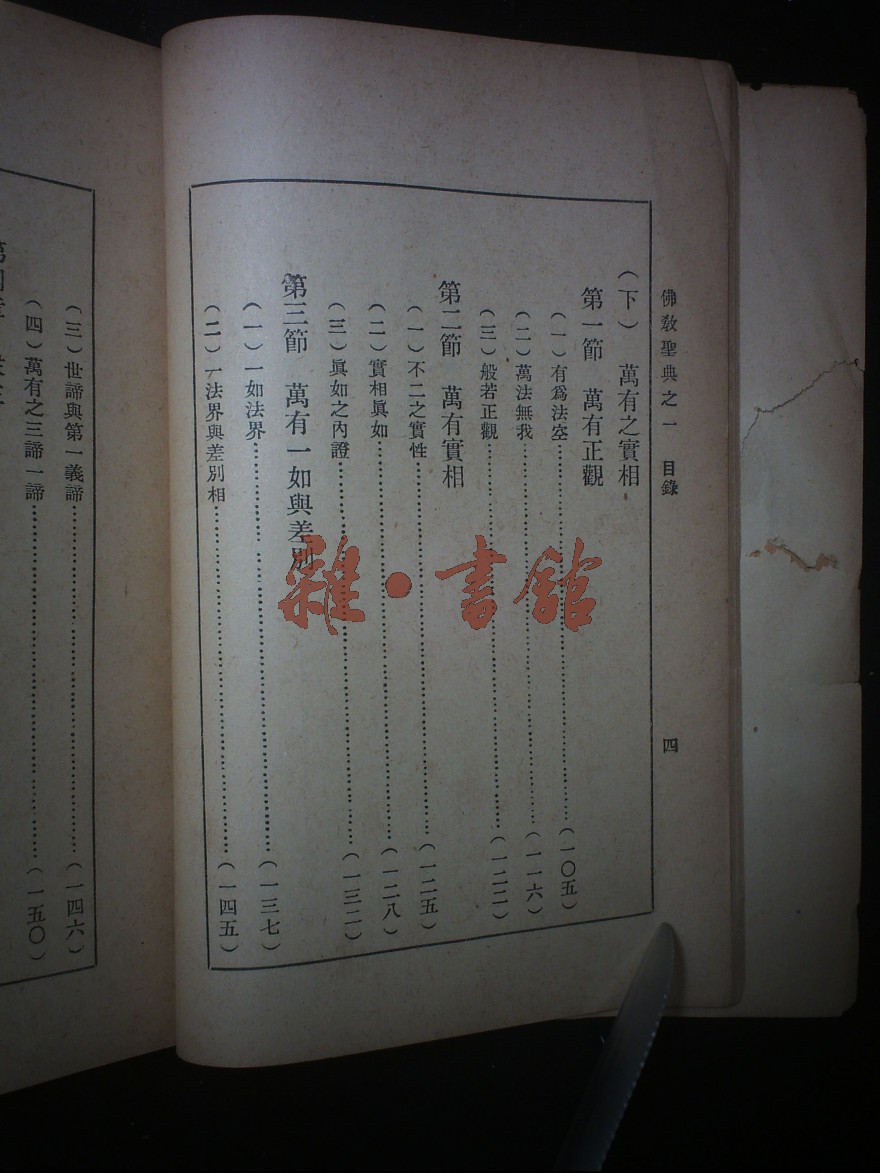 佛教聖典之一　目錄　四
（下）　萬有之實相
第一節　萬有正觀
（一）有爲法空……（一〇五）
（二）萬法無我……（一一六）
（三）般若正觀……（一二二）
第二節　萬有實相
（一）不二之實性……（一二五）
（二）實相眞如……（一二八）
（三）眞如之內證……（一三二）
第三節　萬有一如與差別
（一）一如法界……（一三七）
（二）一法界與差別相……（一四五）
（三）世諦與第一義諦……（一四六）
（四）萬有之三諦一諦……（一五〇）
雜·書館